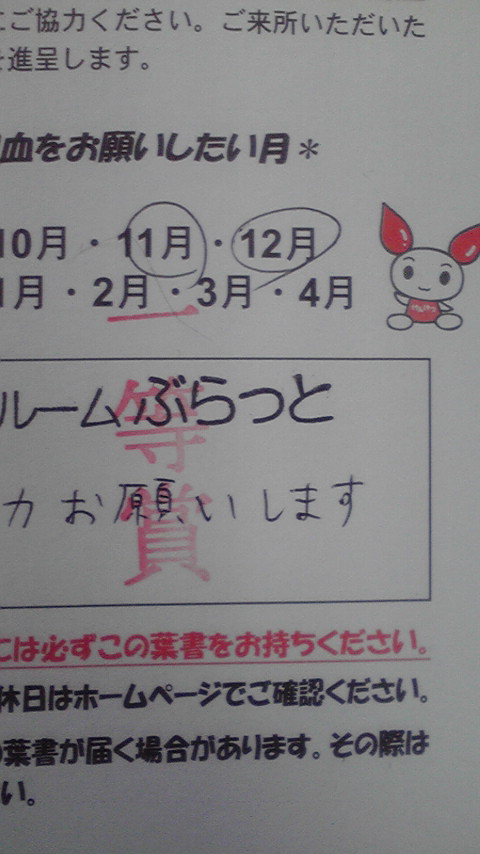 にご協力ください。ご来所いただいた
を進呈します。
血をお願いしたい月＊
10月・11月・12月
1月・2月・3月・4月
けんけつ
ルームぷらっと
力お願いします
一等賞
には必ずこの葉書をお持ちください。
休日はホームページでご確認ください。
の葉書が届く場合があります。その際は
い。